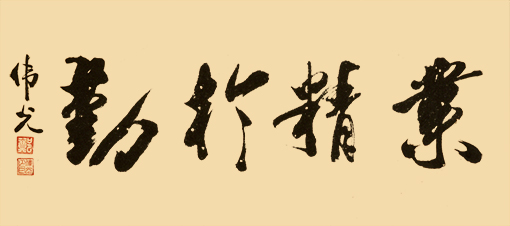 業精於勤
伟光